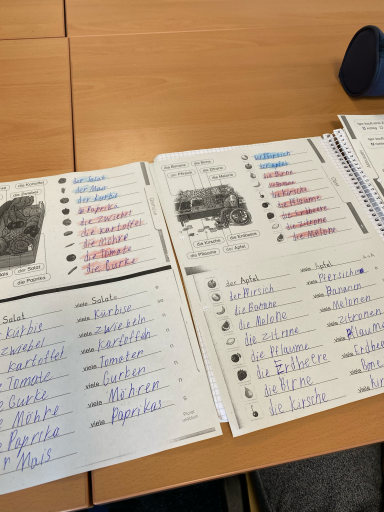 die Kartoffel
der Salat
die Paprika
der Salat
der Mais
der Kürbis
die Paprika
die Zwiebel
die Kartoffel
die Möhre
die Tomate
die Gurke
Salat
viele Salate
Kürbis
viele Kürbise
Zwiebel
viele Zwiebeln
Kartoffel
viele Kartoffeln
Tomate
viele Tomaten
Gurke
viele Gurken
Möhre
viele Möhren
Paprika
viele Paprikas
Mais
die Banane
die Birne
die Zitrone
die Melone
die Kirsche
die Erdbeere
die Pflaume
der Apfel
der Pfirsich
der Apfel
die Birne
die Kirsche
die Pflaume
die Erdbeere
die Zitrone
die Melone
der Apfel
viele Äpfel
der Pfirsich
viele Pfirsiche
die Banane
viele Bananen
die Melone
viele Melonen
die Zitrone
viele Zitronen
die Pflaume
viele Pflaume
die Erdbeere
viele Erdbee
die Birne
viele
die Kirsche
viele